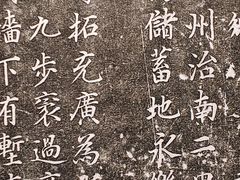 州治南二
儲蓄地永樂
拓充廣為
九步袤過
墻下有塹